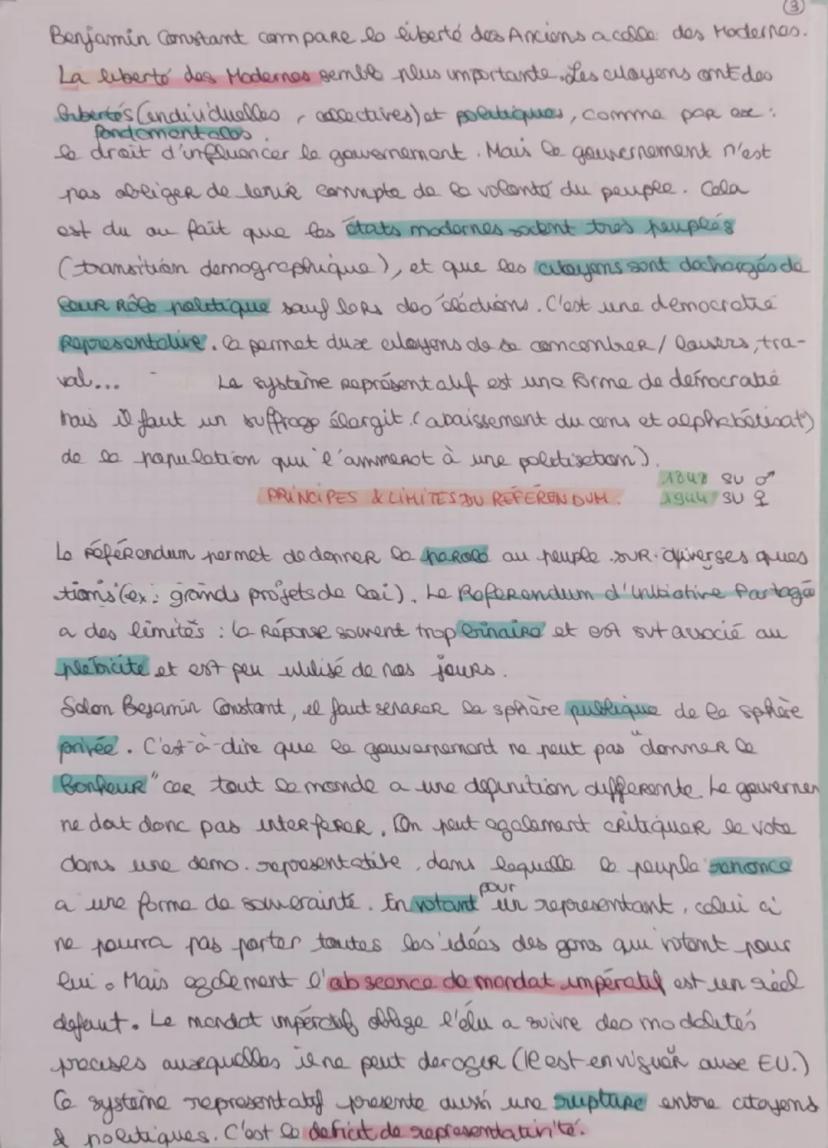 3
Benjamin Constant compare la liberté des Anciens a celle des Modernes.
La liberté des Modernes semble plus importante. Les citoyens ont des
libertés (individuelles, collectives) et politiques, comme par ex :
fondamentales
le droit d'influencer le gouvernement. Mais le gouvernement n'est
pas obliger de tenir compte de la volonté du peuple. Cela
est du au fait que les états modernes soient très peuplés
(transition démographique), et que les citoyens sont dechargés de
leur rôle politique sauf lors des élections. C'est une democratie
representative. Ca permet aux citoyens de se concentrer / loisirs, tra-
vail... Le système représentatif est une forme de démocratie
mais il faut un suffrage élargit (abaissement du cens et alphabétisat°)
de la population qui l'ammenot à une politisation).
1848 SU ♂
PRINCIPES & LIMITES DU RÉFÉRENDUM. 1944 SU ♀
Le référendum permet de donner la parole au peuple sur diverses ques
tions (ex : grands projets de loi). Le Referendum d'Initiative Partagé
a des limites : la réponse souvent trop binaire et est svt associé au
plebicite et est peu utilisé de nos jours.
Selon Bejamin Constant, il faut separer la sphère publique de la sphère
privée. C'est-à-dire que le gouvernement ne peut pas "donner le
Bonheur" car tout le monde a une definition differente. Le gouvernem
ne doit donc pas interferer. On peut egalement critiquer le vote
dans une demo. representative, dans laquelle le peuple renonce
a une forme de souverainté. En votant pour un representant, celui ci
ne pourra pas porter toutes les idées des gens qui votent pour
lui. Mais egalement l'abscence de mandat impératif est un réel
defaut. Le mandat impératif oblige l'élu a suivre des modalités
precises auxquelles il ne peut deroger (il est en viguer aux EU.)
Ce système representatif presente aussi une rupture entre citoyens
& politiques. C'est le deficit de representativité.